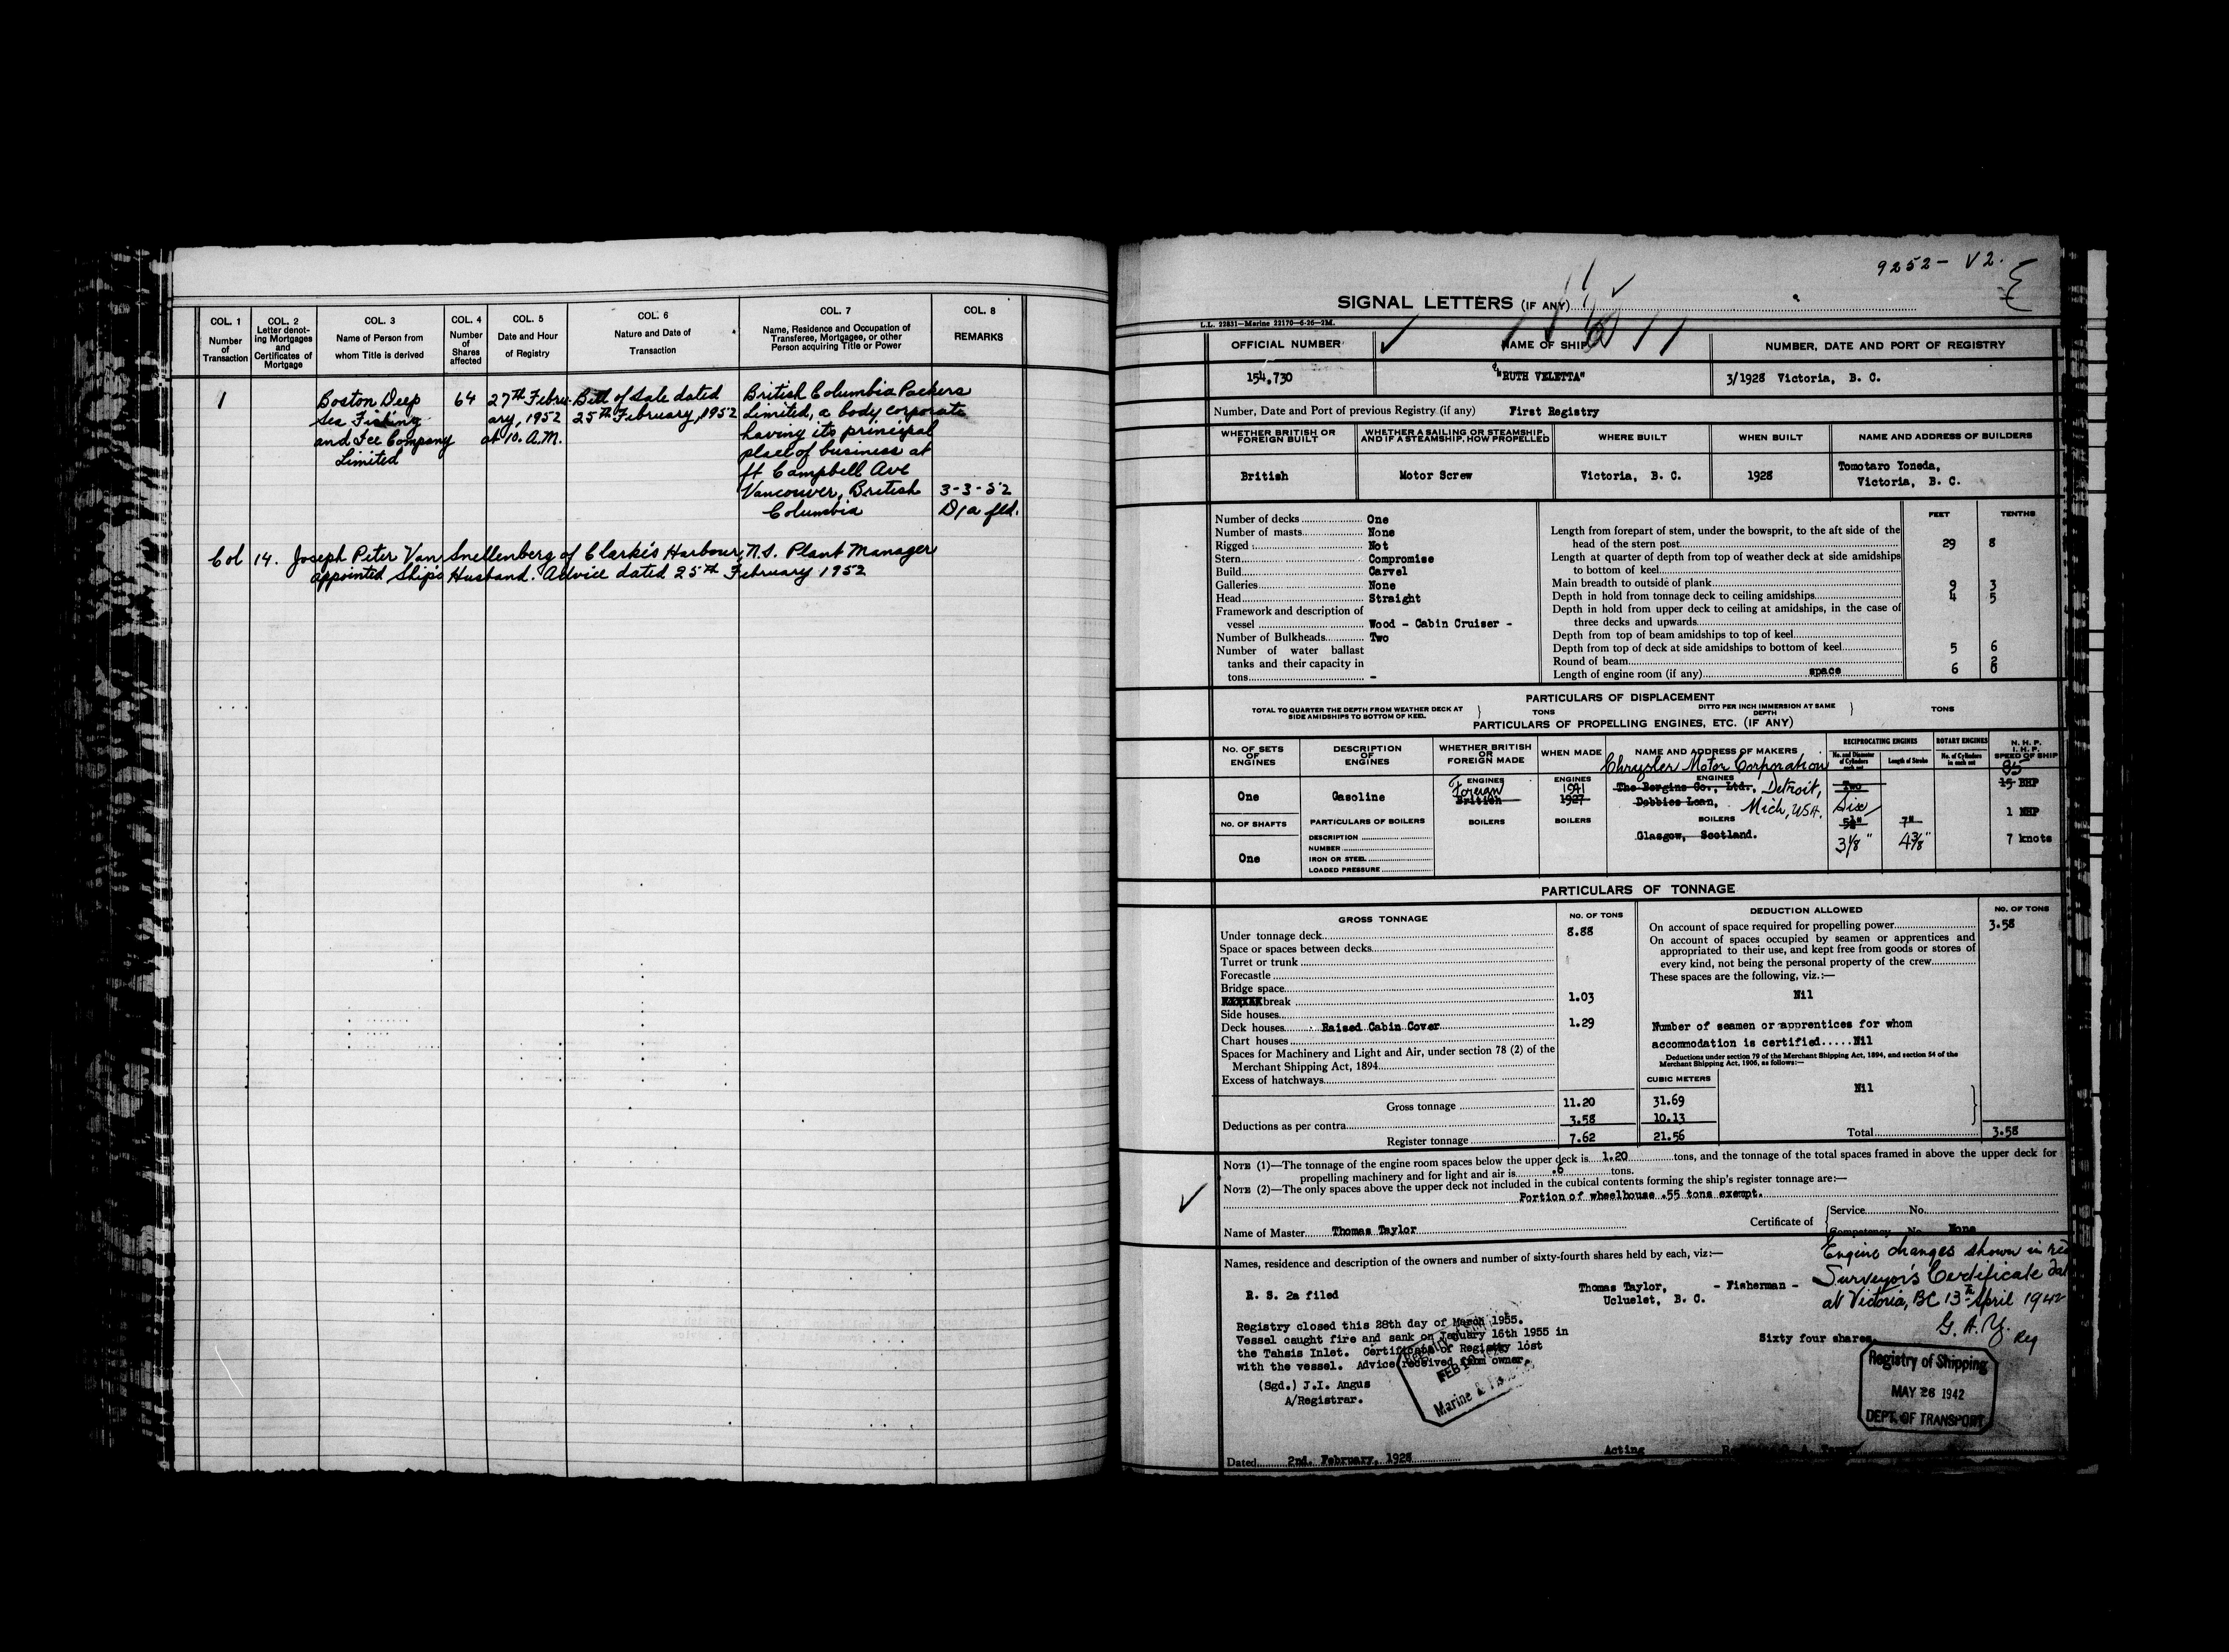 COL. 1
Number
of
Transaction
COL. 2
Letter denot-
ing Mortgages
and
Certificates of
Mortgage
COL. 3
Name of Person from
whom Title is derived
COL. 4
Number
of
Shares
affected
COL. 5
Date and Hour
of Registry
COL. 6
Nature and Date of
Transaction
COL. 7
Name, Residence and Occupation of
Transferee, Mortgagee, or other
Person acquiring Title or Power
COL. 8
REMARKS
1
Boston Deep
Sea Fishing
and Ice Company
Limited
64
27th Febru-
ary, 1952
at 10. A.M.
Bill of Sale dated
25th February, 1952
British Columbia Packers
Limited, a body corporate
having its principal
place of business at
ft Campbell Ave
Vancouver, British
Columbia
3-3-52
D/a fld.
Col 14. Joseph Peter Van Snellenberg of Clark's Harbour, N.S. Plant Manager
appointed Ship's Husband. Advice dated 25th February 1952
9252- V2.
SIGNAL LETTERS (IF ANY)
L.L. 22831—Marine 22170—6-26—2M.
OFFICIAL NUMBER
NAME OF SHIP
NUMBER, DATE AND PORT OF REGISTRY
154,730
"RUTH VELETTA"
3/1928 Victoria, B. C.
Number, Date and Port of previous Registry (if any) First Registry
WHETHER BRITISH OR
FOREIGN BUILT
WHETHER A SAILING OR STEAMSHIP,
AND IF A STEAMSHIP, HOW PROPELLED
WHERE BUILT
WHEN BUILT
NAME AND ADDRESS OF BUILDERS
British
Motor Screw
Victoria, B. C.
1928
Tomotaro Yoneda,
Victoria, B. C.
Number of decks One
Number of masts None
Rigged Not
Stern Compromise
Build Carvel
Galleries None
Head Straight
Framework and description of
vessel Wood - Cabin Cruiser -
Number of Bulkheads Two
Number of water ballast
tanks and their capacity in
tons -
FEET TENTHS
Length from forepart of stem, under the bowsprit, to the aft side of the
head of the stern post 29 8
Length at quarter of depth from top of weather deck at side amidships
to bottom of keel
Main breadth to outside of plank 9 3
Depth in hold from tonnage deck to ceiling amidships 4 5
Depth in hold from upper deck to ceiling at amidships, in the case of
three decks and upwards
Depth from top of beam amidships to top of keel
Depth from top of deck at side amidships to bottom of keel 5 6
Round of beam 2
Length of engine room (if any) space 6 0
PARTICULARS OF DISPLACEMENT
TOTAL TO QUARTER THE DEPTH FROM WEATHER DECK AT
SIDE AMIDSHIPS TO BOTTOM OF KEEL
TONS
DITTO PER INCH IMMERSION AT SAME
DEPTH
TONS
PARTICULARS OF PROPELLING ENGINES, ETC. (IF ANY)
No. OF SETS
OF
ENGINES
DESCRIPTION
OF
ENGINES
WHETHER BRITISH
OR
FOREIGN MADE
WHEN MADE
NAME AND ADDRESS OF MAKERS
RECIPROCATING ENGINES
No. and Diameter
of Cylinders
in each set
Length of Stroke
ROTARY ENGINES
No. of Cylinders
in each set
N. H. P.
I. H. P.
SPEED OF SHIP
Chrysler Motor Corporation
ENGINES
ENGINES
ENGINES
One
Gasoline
Foreign
British
1941
1927
The Bergius Co., Ltd., Detroit,
Dobbies Loan, Mich, USA.
Glasgow, Scotland.
Two
Six
5½" 7"
3⅛" 4⅜"
85
15 BHP
1 NHP
7 knots
NO. OF SHAFTS
PARTICULARS OF BOILERS
BOILERS
BOILERS
BOILERS
One
DESCRIPTION
NUMBER
IRON OR STEEL
LOADED PRESSURE
PARTICULARS OF TONNAGE
GROSS TONNAGE
NO. OF TONS
Under tonnage deck 8.88
Space or spaces between decks
Turret or trunk
Forecastle
Bridge space
break 1.03
Side houses
Deck houses Raised Cabin Cover 1.29
Chart houses
Spaces for Machinery and Light and Air, under section 78 (2) of the
Merchant Shipping Act, 1894
Excess of hatchways
CUBIC METERS
Gross tonnage 11.20 31.69
Deductions as per contra 3.58 10.13
Register tonnage 7.62 21.56
DEDUCTION ALLOWED
NO. OF TONS
On account of space required for propelling power 3.58
On account of spaces occupied by seamen or apprentices and
appropriated to their use, and kept free from goods or stores of
every kind, not being the personal property of the crew
These spaces are the following, viz.:—
Nil
Number of seamen or apprentices for whom
accommodation is certified.....Nil
Deductions under section 79 of the Merchant Shipping Act, 1894, and section 54 of the
Merchant Shipping Act, 1906, as follows:—
Nil
Total 3.58
NOTE (1)—The tonnage of the engine room spaces below the upper deck is 1.20 tons, and the tonnage of the total spaces framed in above the upper deck for
propelling machinery and for light and air is .6 tons.
NOTE (2)—The only spaces above the upper deck not included in the cubical contents forming the ship's register tonnage are:—
Portion of wheelhouse .55 tons exempt.
Name of Master Thomas Taylor
Certificate of
Service No.
Competency No. None
Names, residence and description of the owners and number of sixty-fourth shares held by each, viz:—
Engine changes shown in red
Surveyor's Certificate dat
at Victoria, BC 13th April 1942
G. A. Y.
Reg
R. S. 2a filed
Thomas Taylor, - Fisherman -
Ucluelet, B. C.
Sixty four shares.
Registry closed this 28th day of March 1955.
Vessel caught fire and sank on January 16th 1955 in
the Tahsis Inlet. Certificate of Registry lost
with the vessel. Advice received from owner.
(Sgd.) J.I. Angus
A/Registrar.
FEB 10
Marine &
Registry of Shipping
MAY 26 1942
DEPT. OF TRANSPORT
Dated 2nd. February, 1928
Acting